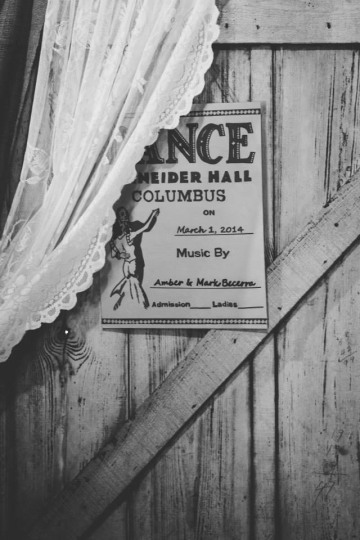 ANCE
NEIDER HALL
COLUMBUS
ON
March 1, 2014
Music By
Amber & Mark Becerra
Admission____ Ladies____